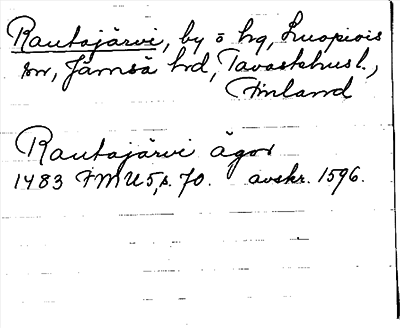 Rautajärvi, by o hg, Luopiois
sn, Jämsä hd, Tavastehusl.,
Finland
Rautajärvi ägor
1483 FMU5, s. 70. avskr. 1596.